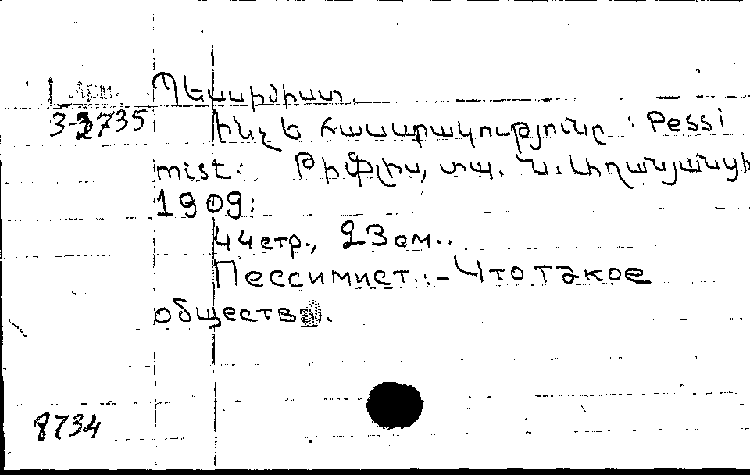 Պեսսիմիստ.
3-2735 Ինչ է հասարակությունը : Pessi
mist: Թիֆլիս, տպ. Ն. Աղանյանցի
1909:
44стр., 23см..
Пессимист.:- Что такое
общество.
8734